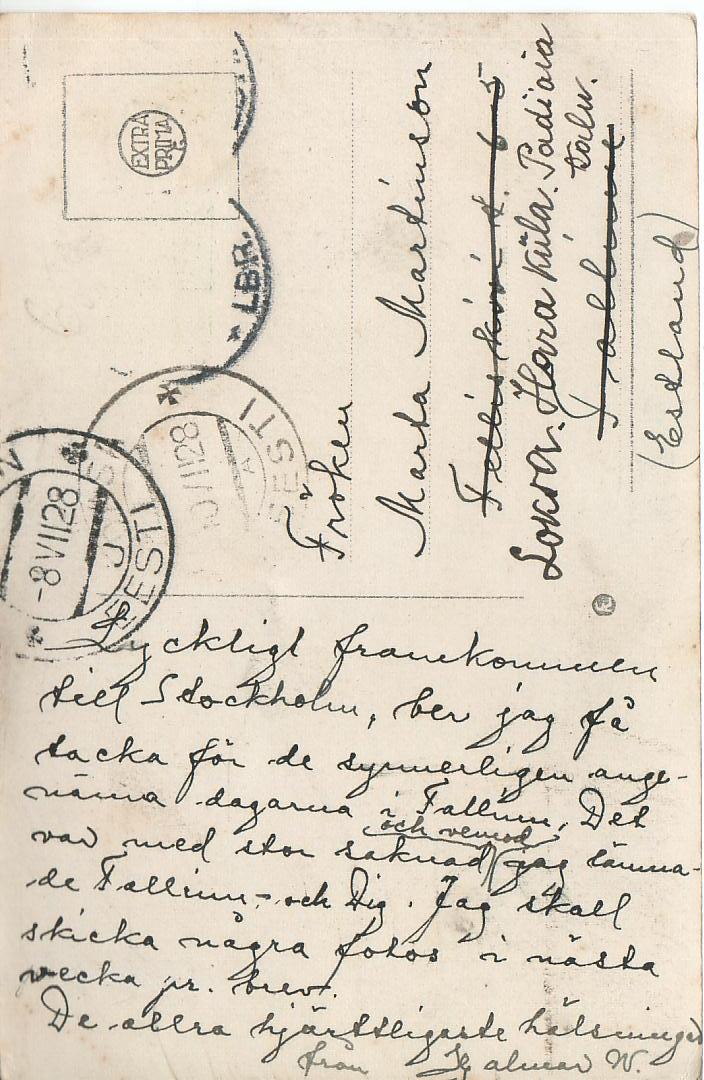 Lyckligt framkommen
till Stockholm, ber jag få
tacka för de synnerligen ange-
näma dagarna i Tallinn. Det
var med stor saknad och vemod jag lämna-
de Tallinn, och Dig. Jag skall
skicka några fotos i nästa
vecka pr. brev.
De allra hjärtligaste hälsningar
från Hjalmar W.
Fröken
Marta Martinson
Loksa. Hara küla. Padiaia
talu.
Tallinn
(Estland)
EXTRA
PRIMA
LBR.
EESTI
10 VII 28
A
EESTI
-8 VII 28
J